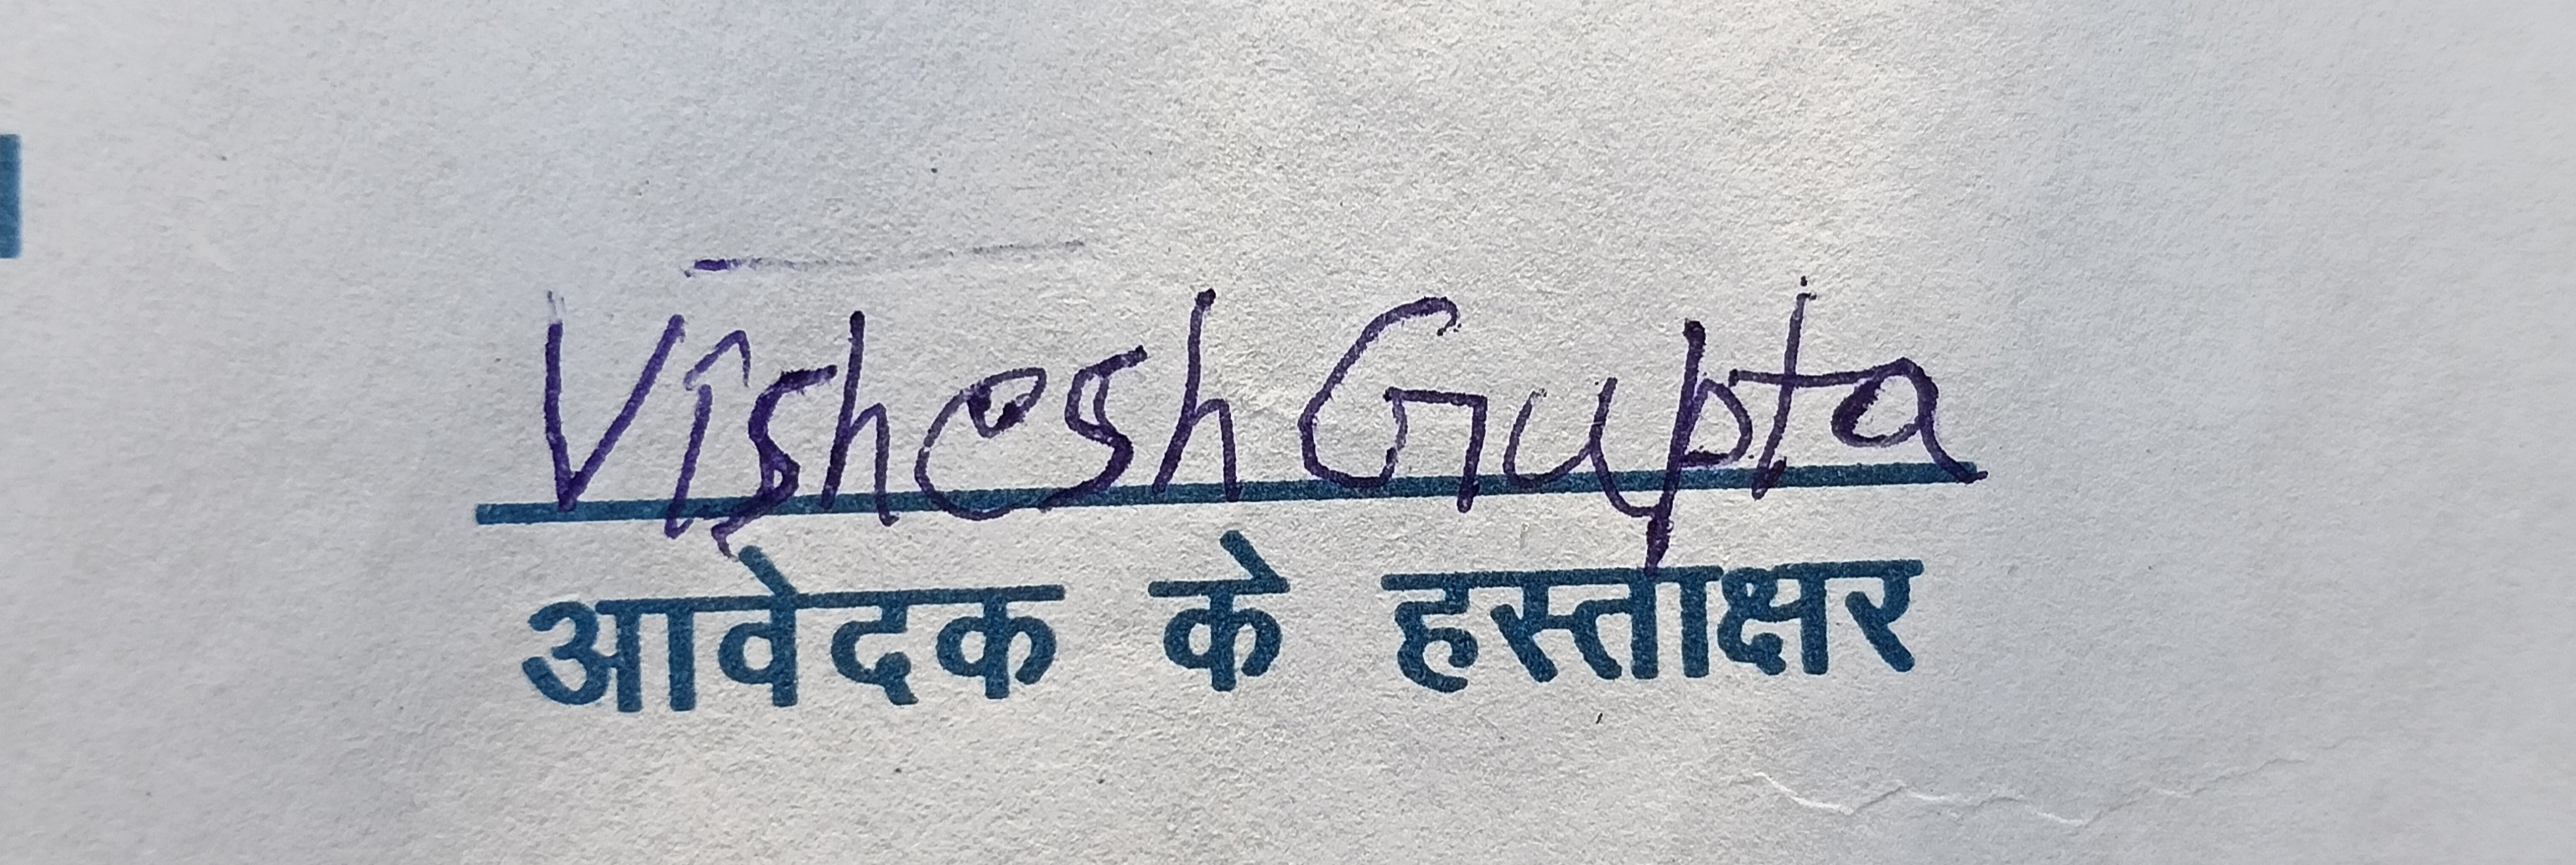 Vishesh Gupta
आवेदक के हस्ताक्षर